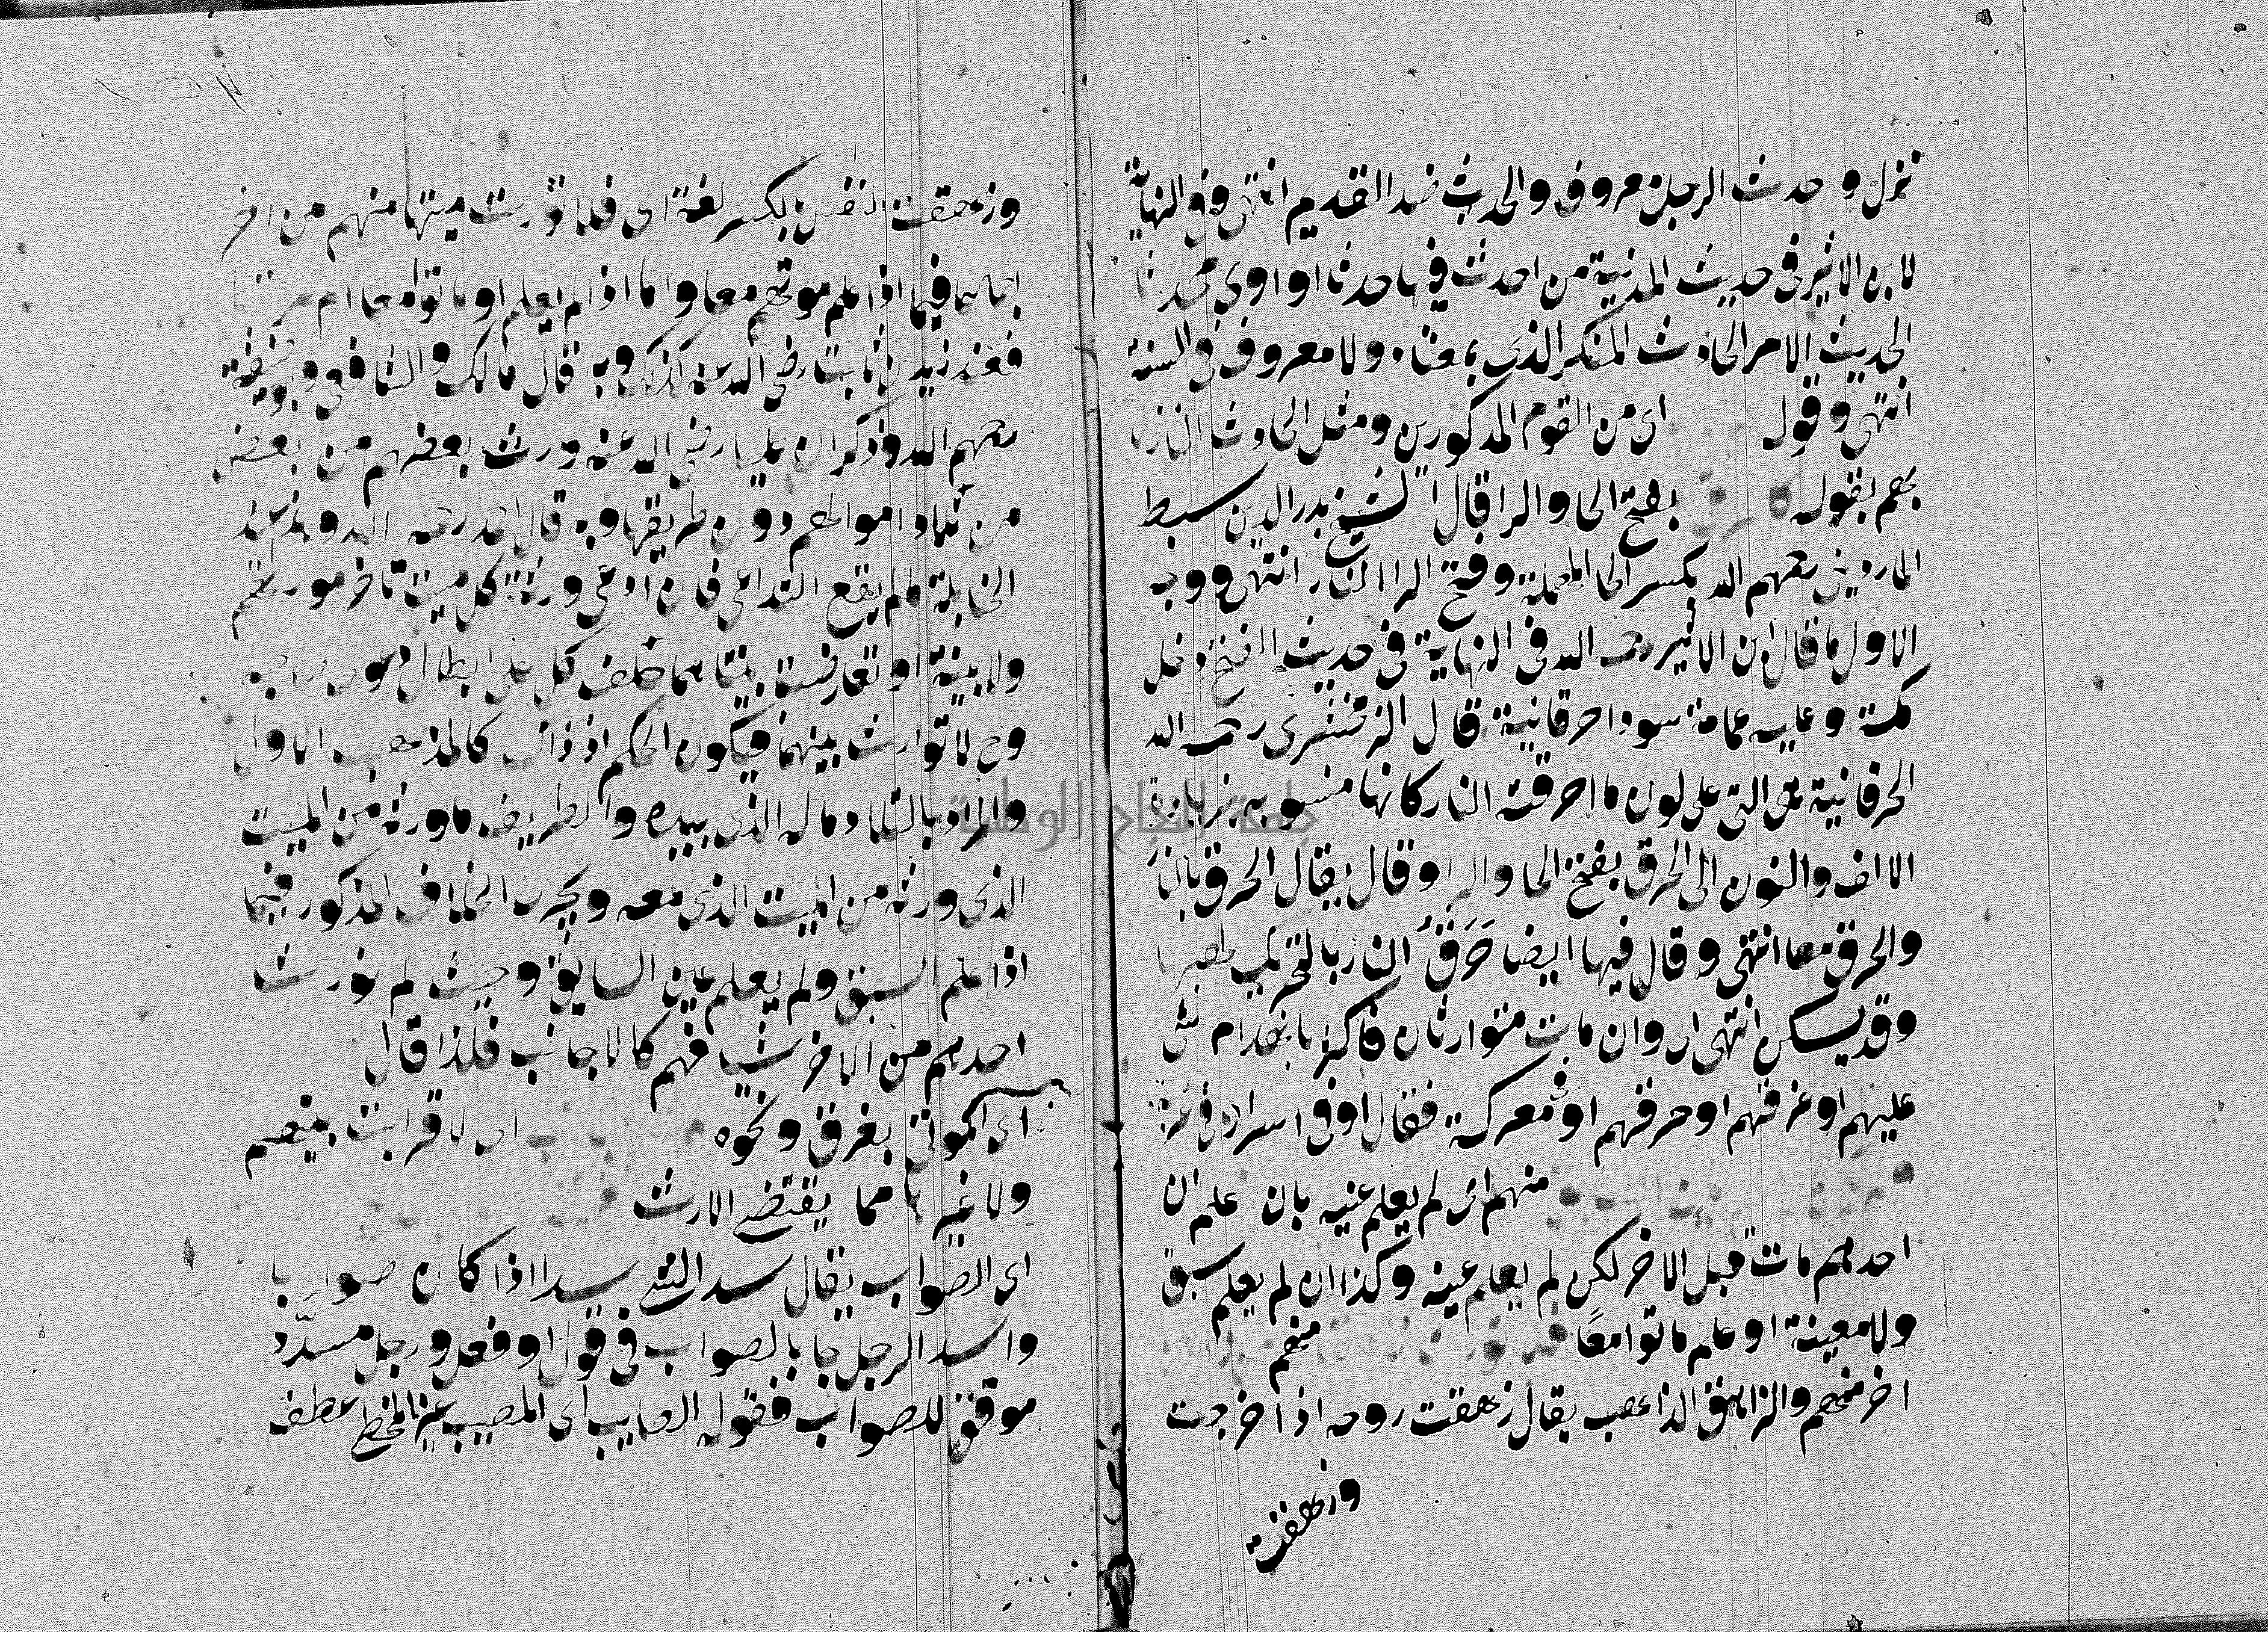 نزل وحدث الرجل معروف والحديث ضد القديم انتهى وفى النهاية
لابن الاثير فى حديث المدينة من احدث فيها حدثا او اوى محدثا
الحديث الامر الحادث المنكر الذى بمعتاد ولا معروف فى السنة
انتهى وقوله اى من القوم المذكورين ومثل الحادث النازل
بهم بقوله بفتح الحا والرا قال الشيخ بدر الدين سبط
الماردينى رحمهم الله بكسر الحا المهملة وفتح الرا النار انتهى ووجه
الاول ما قال ابن الاثير رحمه الله فى النهاية فى حديث الفتح دخل
مكة وعليه عمامة سودا حرقانية قال الزمخشرى رحمه الله
الحرقانية هى التى على لون ما احرقته النار كانها منسوبة بزيادة
الالف والنون الى الحرق بفتح الحا والرا وقال يقال الحرق بالنار
والحرق معا انتهى وقال فيها ايضا حَرَقُ النار بالتحريك لهبها
وقد يسكن انتهى اى وان مات متوارثان فاكثر بانهدام شى
عليهم او غرقهم او حرقهم او فى معركة فقال او فى اسر او فى غربة
منهم اى لم يعلم عينه بان علم ان
احدهم مات قبل الاخر لكن لم يعلم عينه وكذا ان لم يعلم سبق
ولا معية او علم ماتوا معًا فلا تورث منهم
اخر منهم والزاهق الذاهب يقال زهقت روحه اذا خرجت
وزهقت
وزهقت النفس بالكسر لغة اى فلا تورث ميتا منهم من اخر
اجماعا فيما اذا علم موتهم معا واما اذا لم يعلم او ماتوا معا ام مرتبا
فعند زيد بن ثابت رضى الله عنه كذلك وبه قال مالك والشافعى وابو حنيفة
رحمهم الله وذكر ان عليا رضى الله عنه ورث بعضهم من بعض
من تلاد اموالهم دون طريفها وبه قال احمد رحمه الله وهذا عند
الحنابلة ما لم يقع التداعى فان ادعى ورثة كل ميت تاخر مورثهم
ولا بينة او تعارضت بينتاهما حلف كل على ابطال دعوى صاحبه
وح لا توارث بينهما فيكون الحكم اذ ذاك كالمذهب الاول
والمراد بالتلاد ماله الذى بيده والطريف ما ورثه من الميت
الذى ورثه من الميت الذى معه ويجرى الخلاف المذكور فيما
اذا علم السبق ولم يعلم عين السابق وحيث لم نورث
احدهم من الاخر شيا فهم كالاجانب فلذا قال
اى الموتى بغرق ونحوه اى لا قرابت بينهم
ولا غيرها مما يقتضى الارث
اى الصواب يقال سد الشى يسد اذا كان صوابا
واسد الرجل جا بالصواب فى قول او فعل ورجل مسدّد
موفق للصواب فقوله الصايب اى المصيب غير المخطى عطف
جامعة النجاح الوطنية